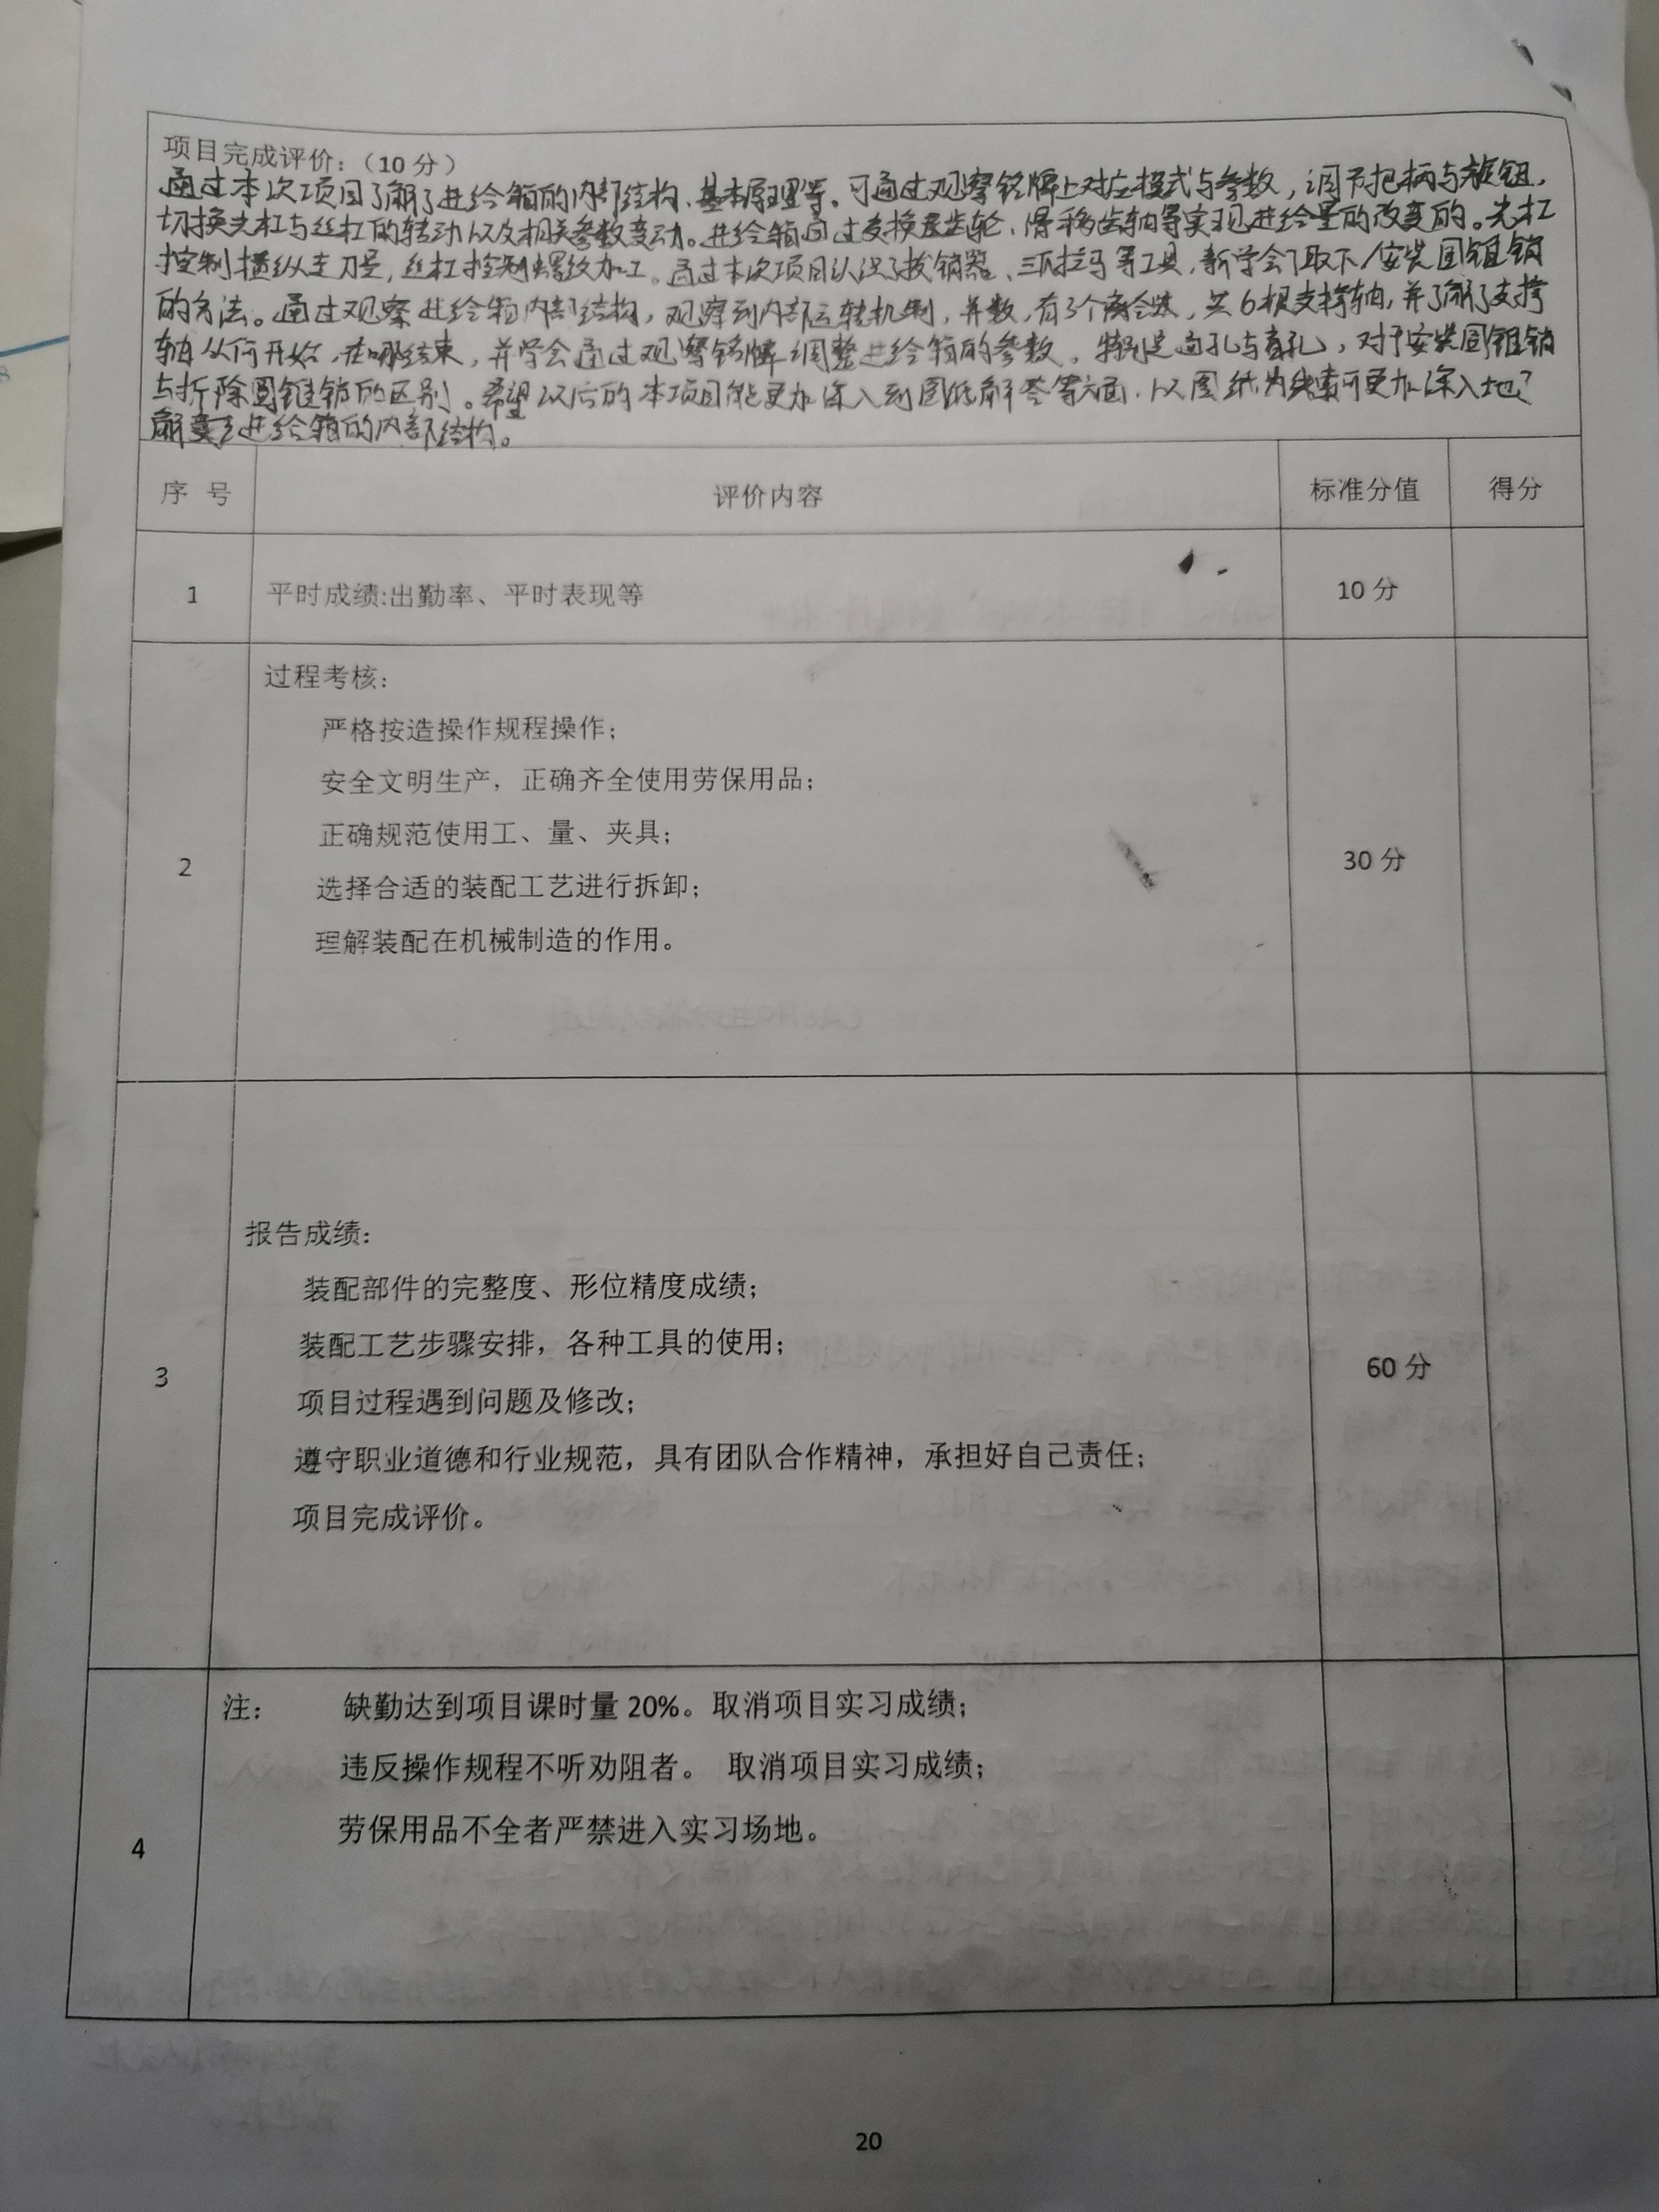 项目完成评价：（10 分）
通过本次项目了解了进给箱的内部结构、基本原理等。可通过观察铭牌上对应模式与参数，调节把柄与旋钮，
切换光杠与丝杠的转动以及相关参数变动。进给箱通过变换齿轮、滑移齿轴等实现进给量的改变的。光杠
控制横纵走刀量，丝杠控制螺纹加工。通过本次项目认识了拔销器、三爪拉马等工具，新学会了取下/安装圆锥销
的方法。通过观察进给箱内部结构，观察到内部运转机制，并数，有3个离合器，共6根支撑轴，并了解了支撑
轴从何开始，在哪结束，并学会通过观察铭牌调整进给箱的参数。特别是通孔与盲孔，对于安装圆锥销
与拆除圆锥销的区别。希望以后的本项目能更加深入到图纸解答等方面，以图纸为线索可更加深入地了
解进给箱的内部结构。
序 号 评价内容 标准分值 得分
1 平时成绩:出勤率、平时表现等 10 分
过程考核：
严格按造操作规程操作；
安全文明生产，正确齐全使用劳保用品；
正确规范使用工、量、夹具；
2 30 分
选择合适的装配工艺进行拆卸；
理解装配在机械制造的作用。
报告成绩：
装配部件的完整度、形位精度成绩；
装配工艺步骤安排，各种工具的使用；
3 60 分
项目过程遇到问题及修改；
遵守职业道德和行业规范，具有团队合作精神，承担好自己责任；
项目完成评价。
注： 缺勤达到项目课时量 20%。取消项目实习成绩；
违反操作规程不听劝阻者。 取消项目实习成绩；
劳保用品不全者严禁进入实习场地。
4
20